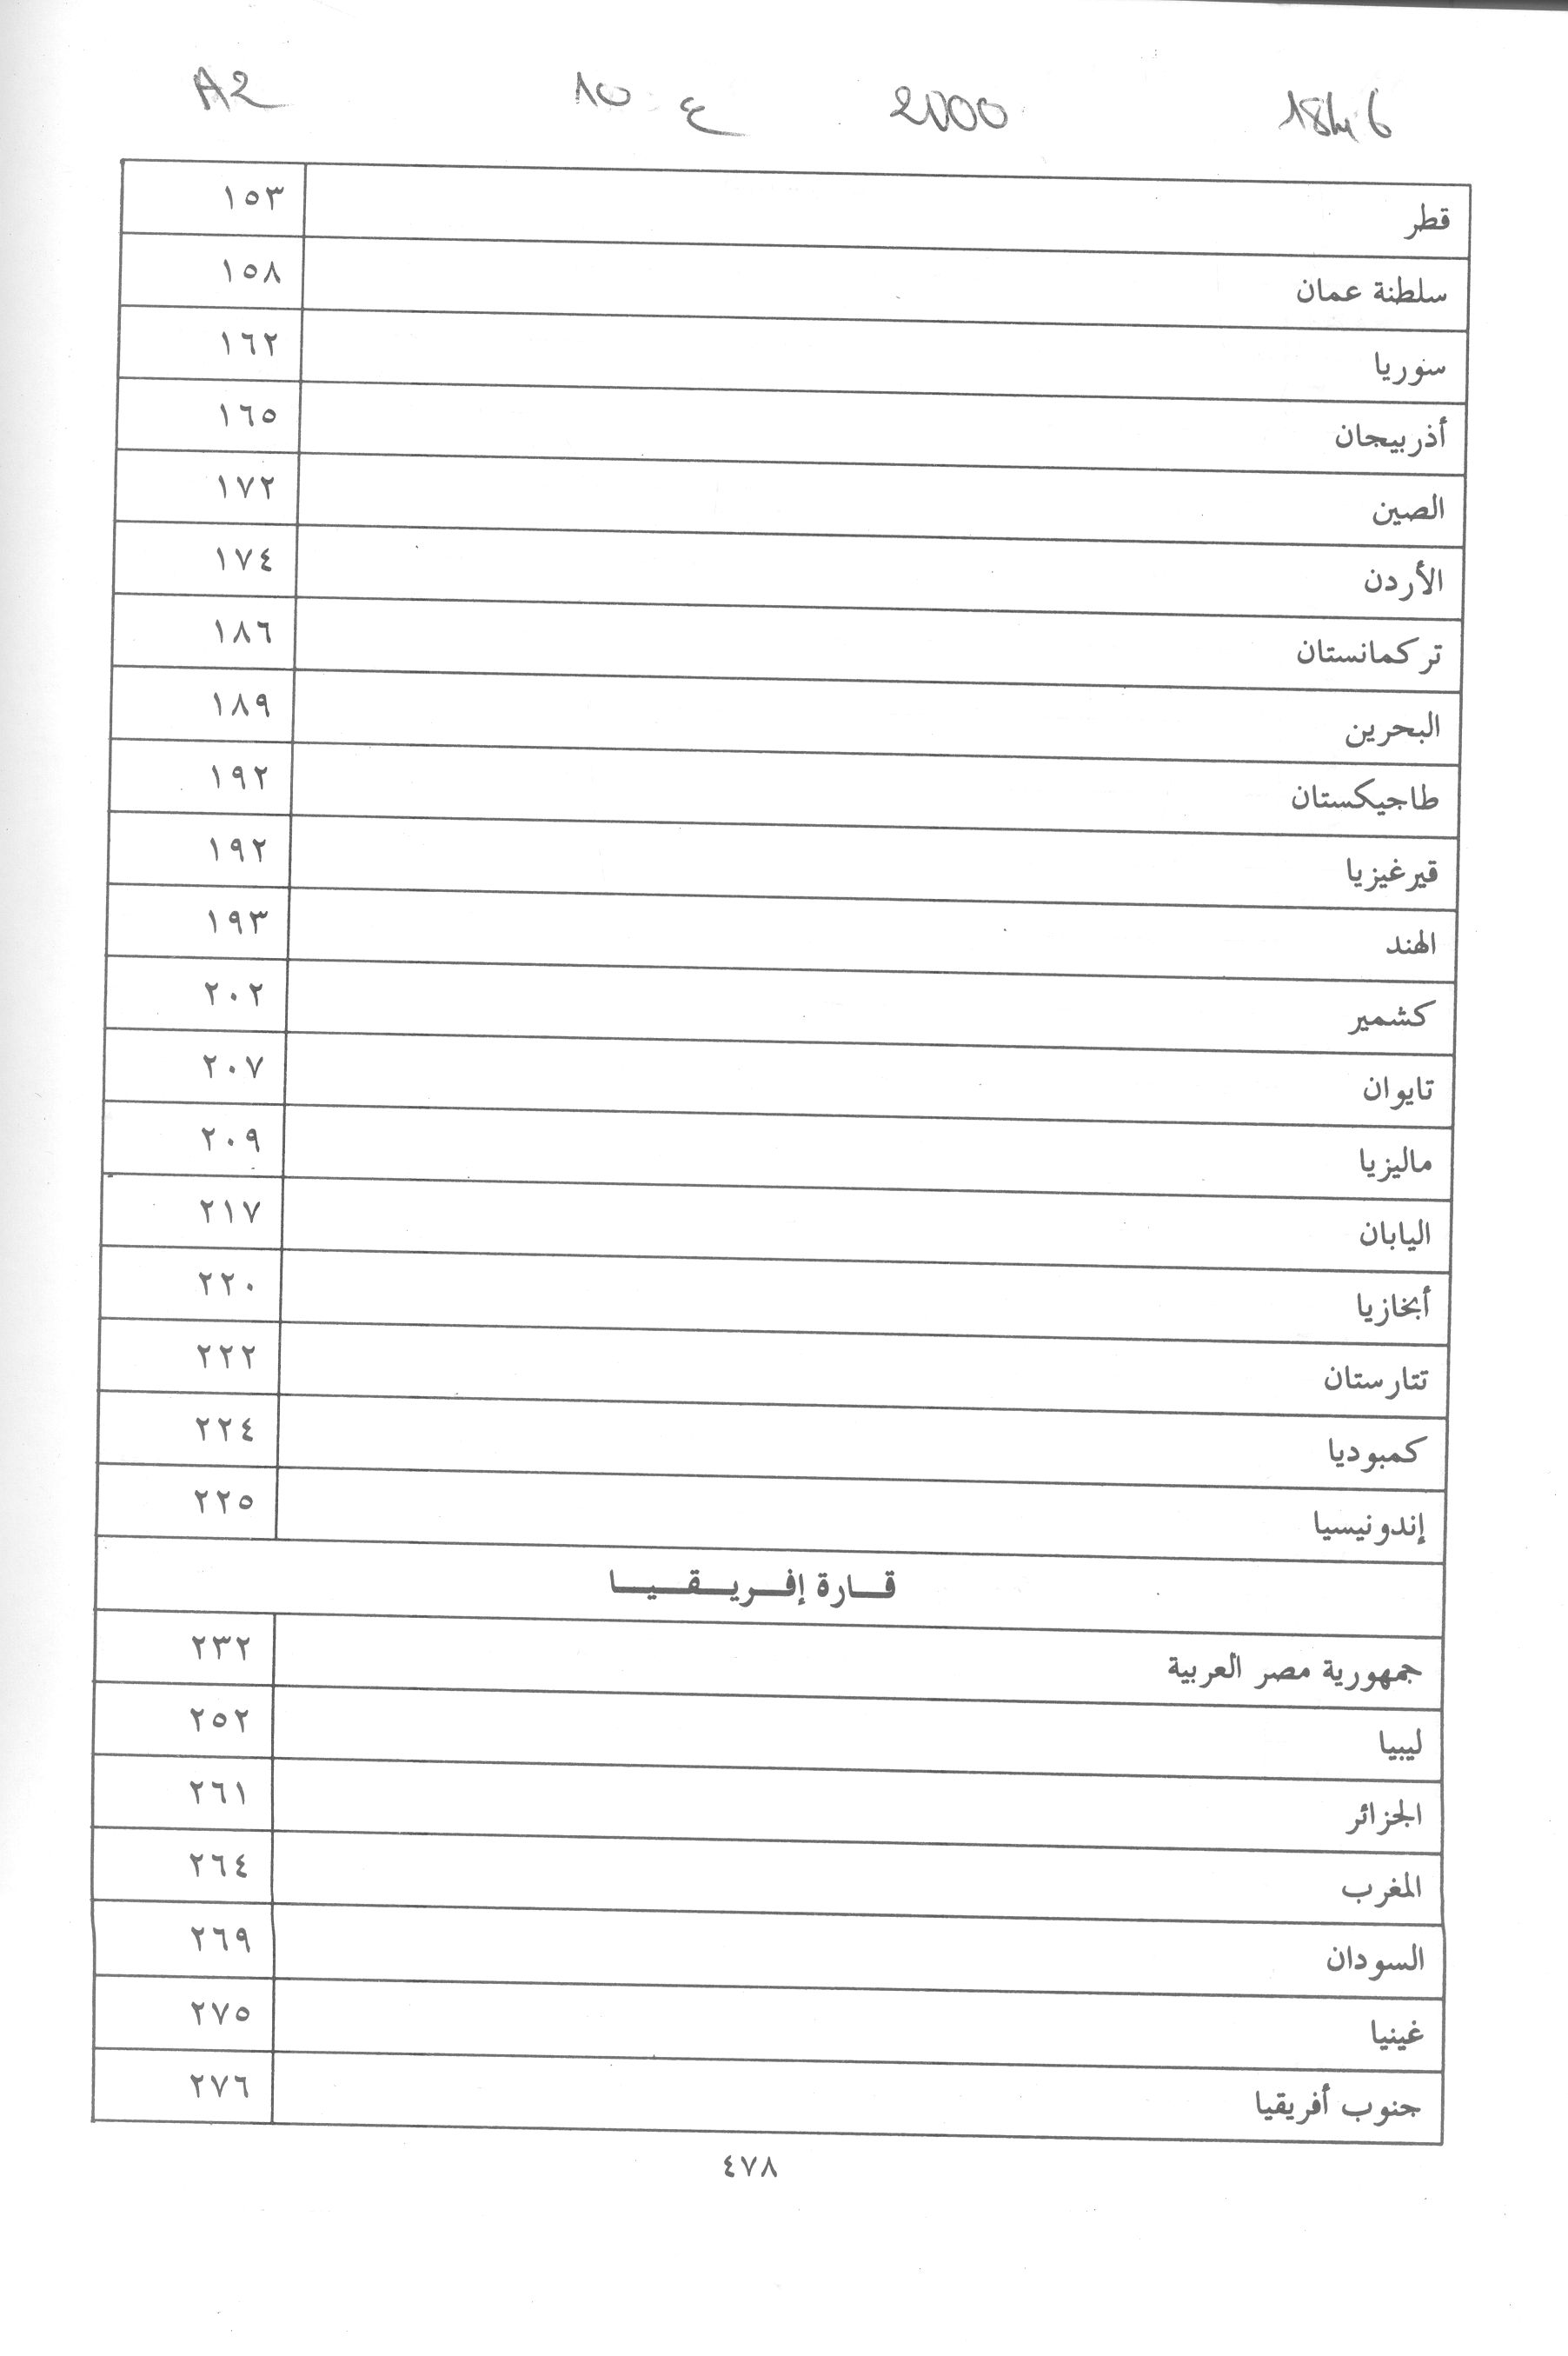 2000 ع 10 A2
قطر ١٥٣
سلطنة عمان ١٥٨
سوريا ١٦٢
أذربيجان ١٦٥
الصين ١٧٢
الأردن ١٧٤
تركمانستان ١٨٦
البحرين ١٨٩
طاجيكستان ١٩٢
قيرغيزيا ١٩٢
الهند ١٩٣
كشمير ٢٠٢
تايوان ٢٠٧
ماليزيا ٢٠٩
اليابان ٢١٧
أبخازيا ٢٢٠
تتارستان ٢٢٢
كمبوديا ٢٢٤
إندونيسيا ٢٢٥
قــارة إفــريــقــيــا
جمهورية مصر العربية ٢٣٢
ليبيا ٢٥٢
الجزائر ٢٦١
المغرب ٢٦٤
السودان ٢٦٩
غينيا ٢٧٥
جنوب أفريقيا ٢٧٦
٤٧٨